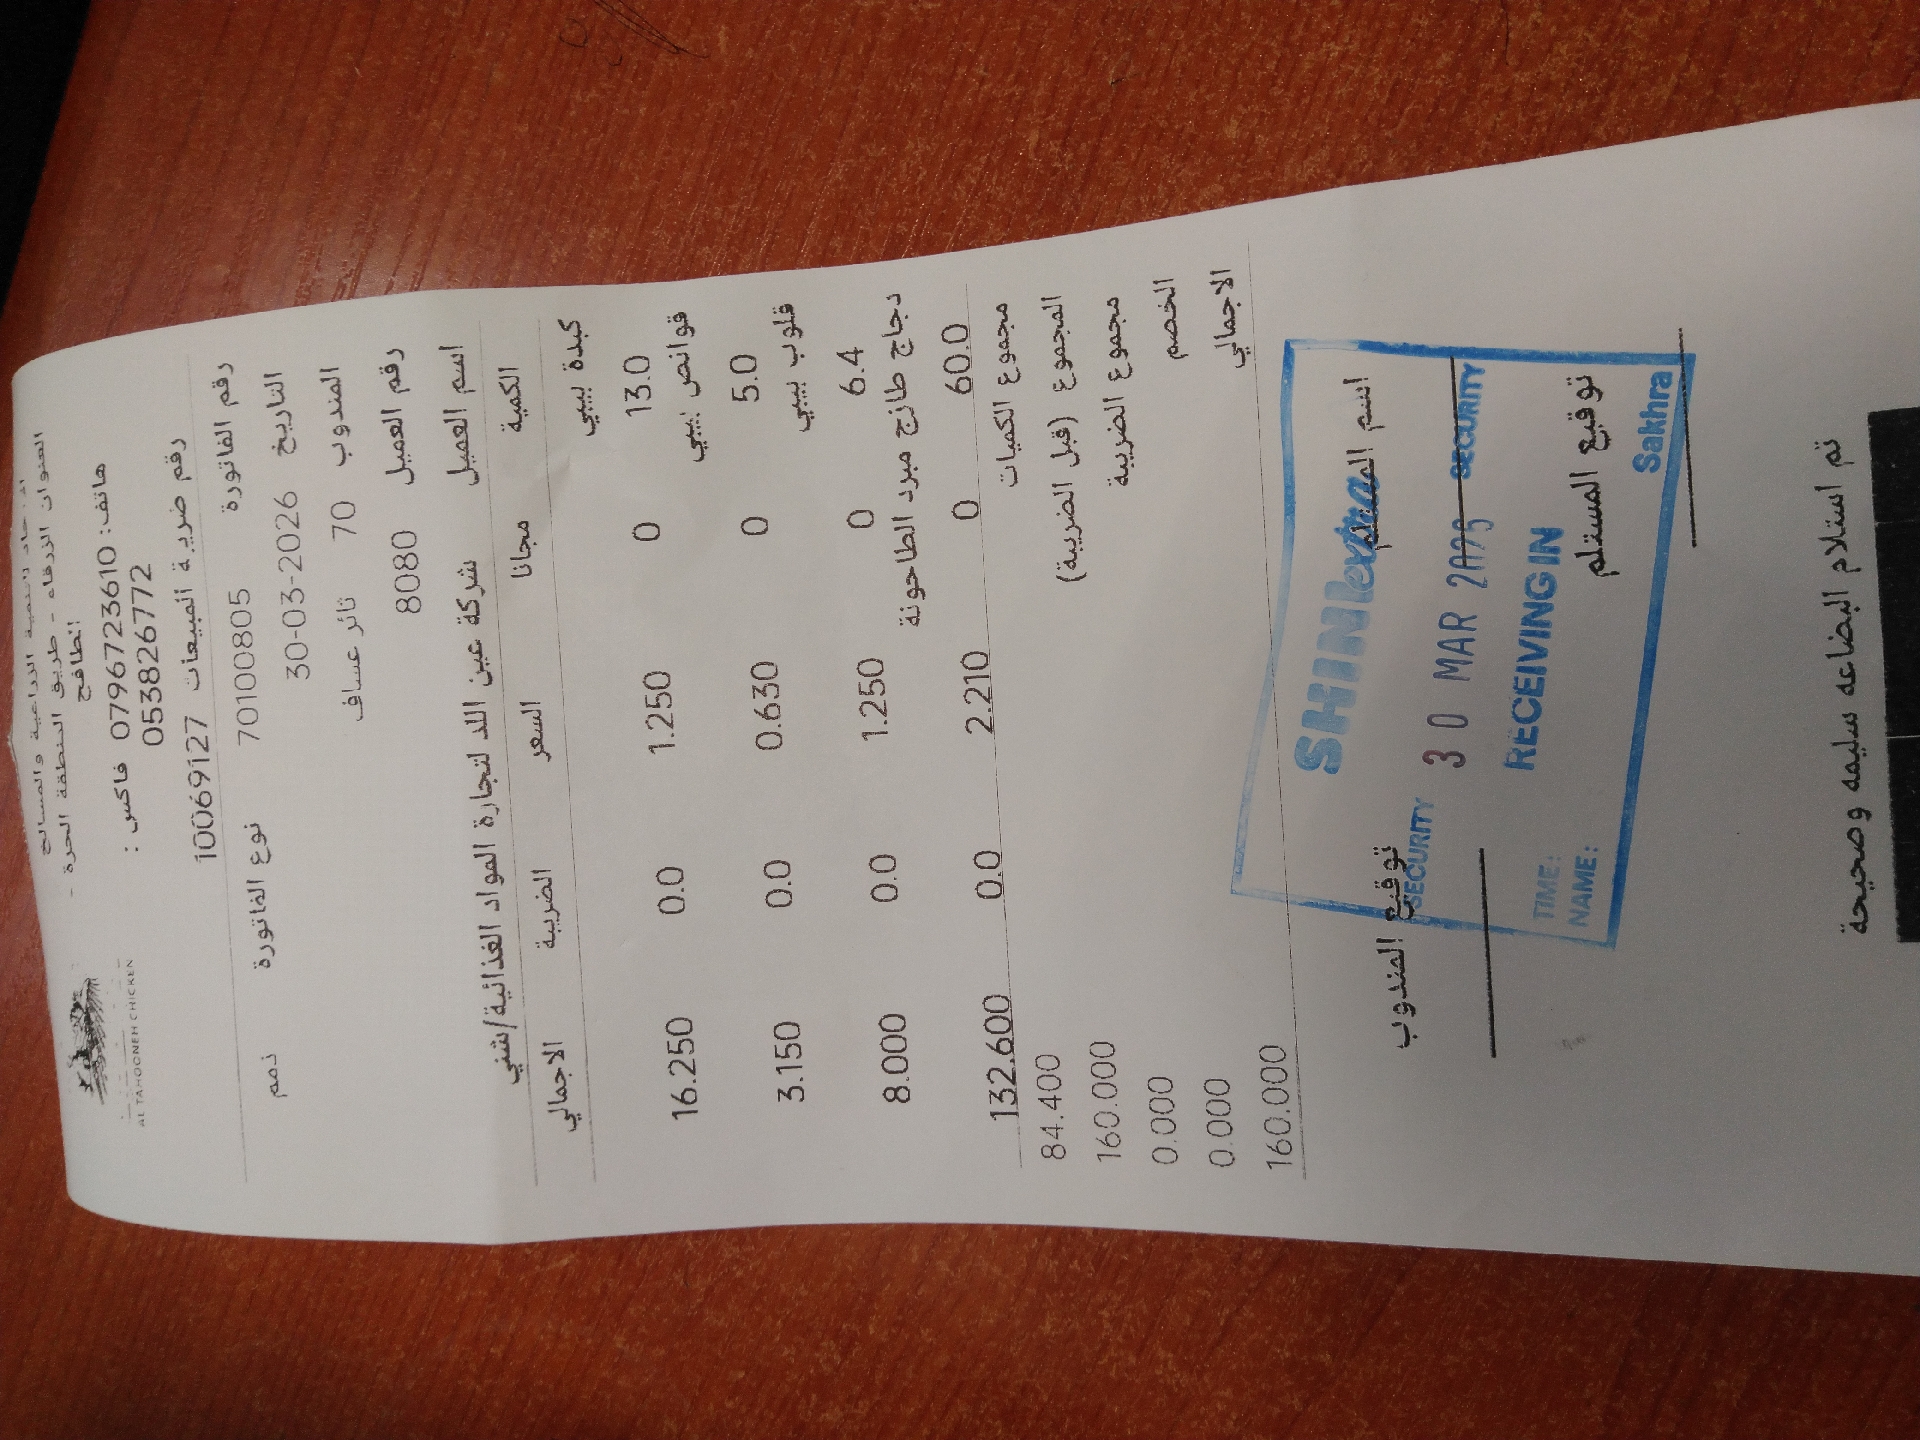 AL TAHOONEH CHICKEN
للتنمية الزراعية والمسالخ
العنوان الزرقاء - طريق المنطقة الحرة -
هاتف: 0796723610 فاكس :
0538826772
رقم ضريبة المبيعات 10069127
رقم الفاتورة 70100805 نوع الفاتورة ذمم
التاريخ 30-03-2026
المندوب 70 ثائر عساف
رقم العميل 8080
اسم العميل شركة عين اللد لتجارة المواد الغذائية/شني
الكمية مجانا السعر الضريبة الاجمالي
كبدة بيبي
13.0 0 1.250 0.0 16.250
قوانص بيبي
5.0 0 0.630 0.0 3.150
قلوب بيبي
6.4 0 1.250 0.0 8.000
دجاج طازج مبرد الطاحونة
60.0 0 2.210 0.0 132.600
مجموع الكميات 84.400
المجموع (قبل الضريبة) 160.000
مجموع الضريبة 0.000
الخصم 0.000
الاجمالي 160.000
اسم المستلم توقيع المندوب
30 MAR
SECURITY SECURITY
RECEIVING IN
TIME:
NAME:
توقيع المستلم
Sakhra
تم استلام البضاعه سليمه وصحيحة